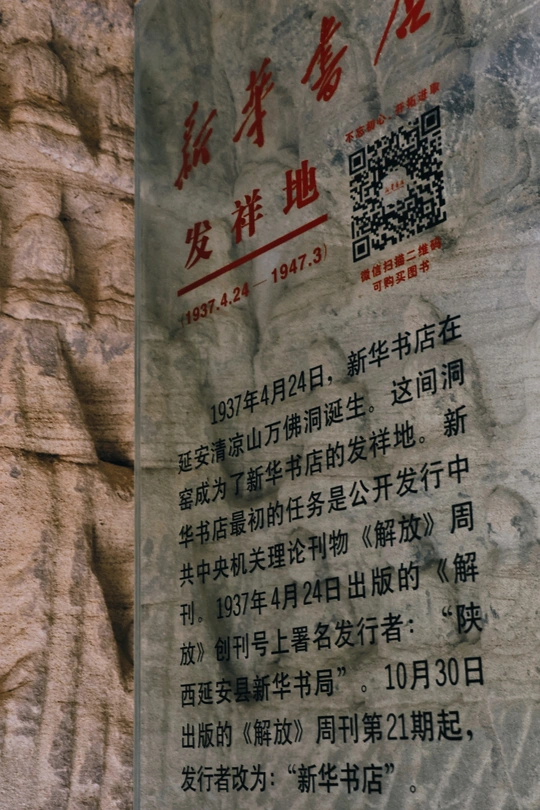 新华书店
发祥地
(1937.4.24—1947.3)
不忘初心，砥砺奋进
微信扫描二维码
可购买图书
1937年4月24日，新华书店在
延安清凉山万佛洞诞生。这间洞
窑成为了新华书店的发祥地。新
华书店最初的任务是公开发行中
共中央机关理论刊物《解放》周
刊。1937年4月24日出版的《解
放》创刊号上署名发行者：“陕
西延安县新华书局”。10月30日
出版的《解放》周刊第21期起，
发行者改为：“新华书店”。